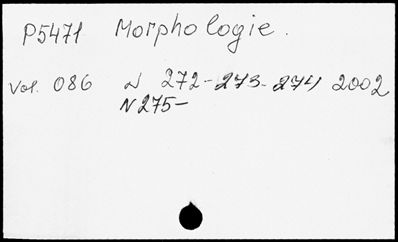 P5471 Morphologie.
Vol. 086 N 272-273-274 2002
N275-